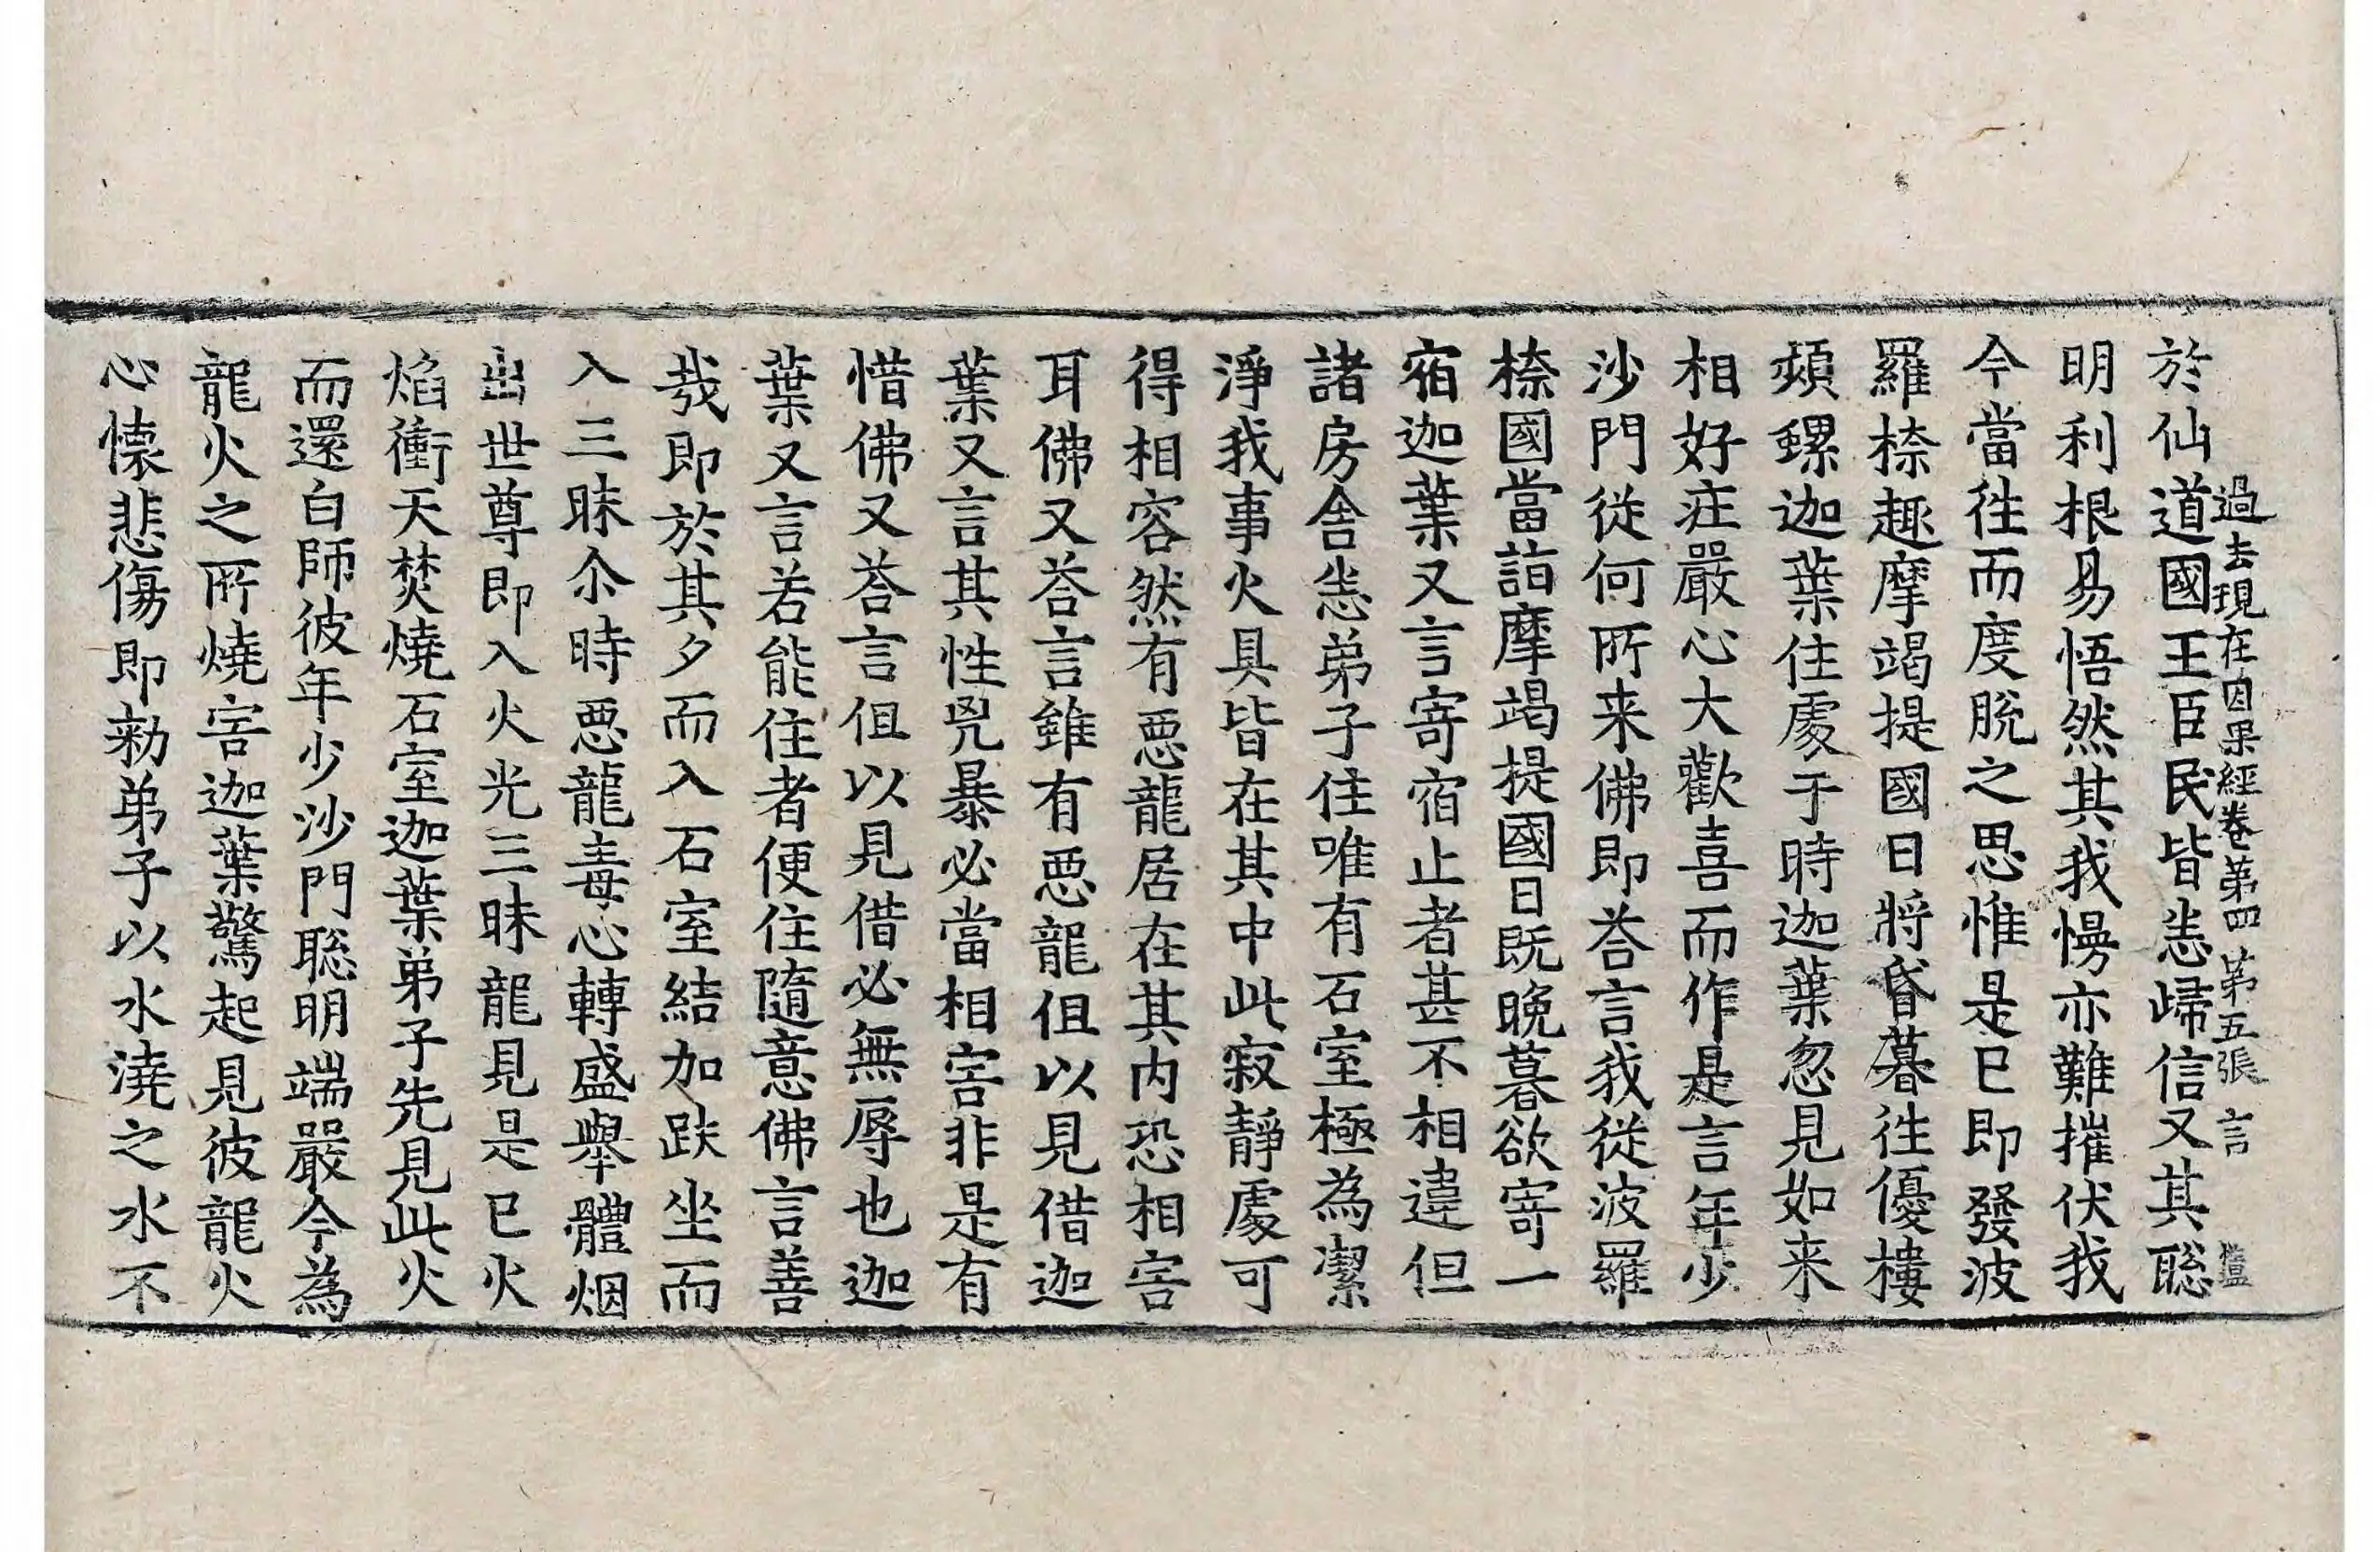 過去現在因果經卷第四 第五張 言
於仙道國王臣民皆悉歸信又其聡
明利根易悟然其我慢亦難摧伏我
今當徃而度脫之思惟是已即發波
羅㮈趣摩竭提國日將昏暮徃優樓
頻螺迦葉住處于時迦葉忽見如来
相好莊嚴心大歡喜而作是言年少
沙門從何所来佛即荅言我從波羅
㮈國當詣摩竭提國日既晚暮欲寄一
宿迦葉又言寄宿止者甚不相違但
諸房舍悉弟子住唯有石室極為潔
淨我事火具皆在其中此寂靜處可
得相容然有惡龍居在其内恐相害
耳佛又荅言雖有惡龍但以見借迦
葉又言其性兇暴必當相害非是有
惜佛又荅言但以見借必無辱也迦
葉又言若能住者便住隨意佛言善
㦲即於其夕而入石室結加趺坐而
入三昧尒時惡龍毒心轉盛舉體烟
出世尊即入火光三昧龍見是已火
焰衝天焚燒石室迦葉弟子先見此火
而還白師彼年少沙門聡明端嚴今為
龍火之所燒害迦葉驚起見彼龍火
心懐悲傷即勑弟子以水澆之水不